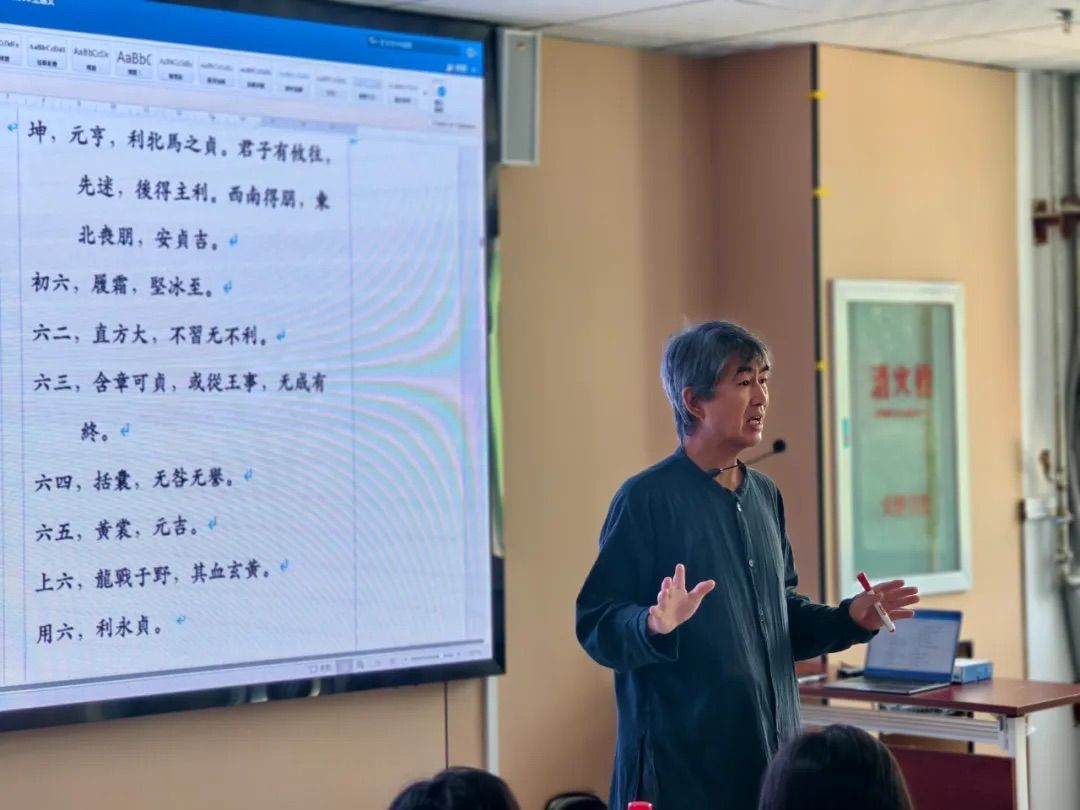 AaBbC
坤，元亨，利牝馬之貞。君子有攸往，
先迷，後得主利。西南得朋，東
北喪朋，安貞吉。
初六，履霜，堅冰至。
六二，直方大，不習无不利。
六三，含章可貞，或從王事，无成有
終。
六四，括囊，无咎无譽。
六五，黃裳，元吉。
上六，龍戰于野，其血玄黃。
用六，利永貞。